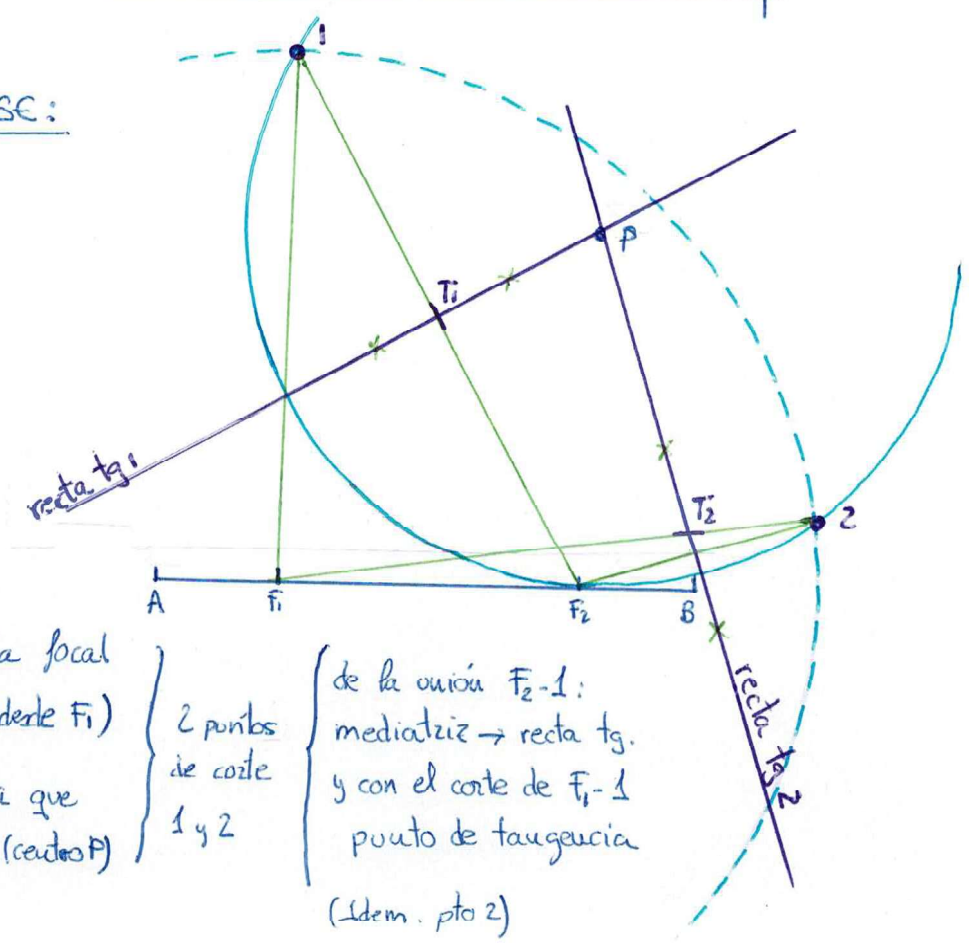 SE:
1
P
T1
recta tg1
T2
2
A
F1
F2
B
recta tg 2
a focal
desde F1)
que
(centro P)
2 puntos
de corte
1 y 2
de la unión F2-1:
mediatriz → recta tg.
y con el corte de F1-1
punto de tangencia
(Idem. pto 2)